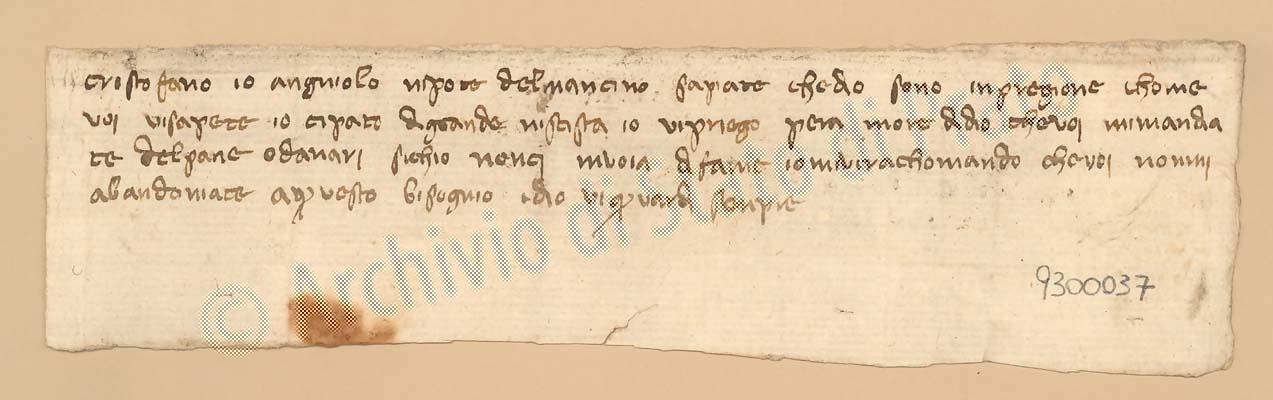 cristofano io angniolo nipote delmancino sapiate chedio sono inpregione chome
voi visapete io cipato digrande nistista io vipriego pera more didio chevoi mimandia
te delpane odanari sichio nonci muoia difame iomivirachomando chevoi nonmi
abandoniate aquesto bisognio idio viguardi senpre
9300037
© Archivio di Stato di Prato